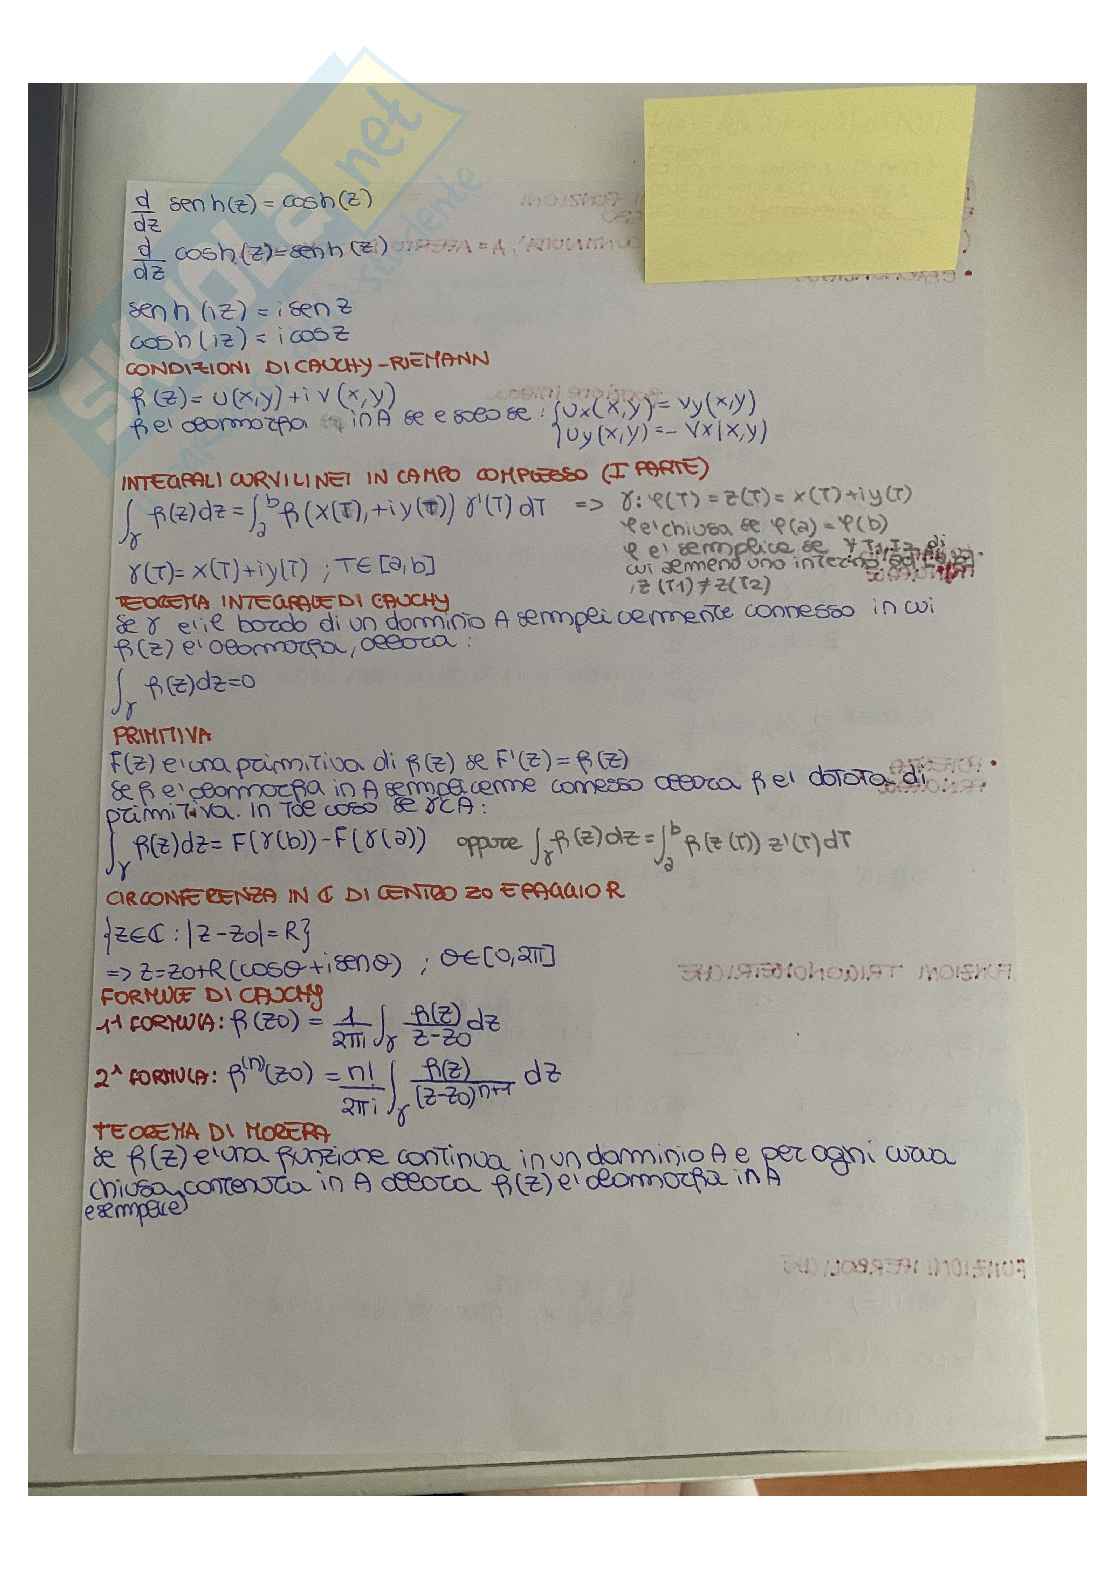 d/dz senh(z) = cosh(z)
d/dz cosh(z) = senh(z)
senh(iz) = i sen z
cosh(iz) = i cos z
CONDIZIONI DI CAUCHY-RIEMANN
f(z) = U(x,y) + i V(x,y)
f e' olomorfa in A se e solo se : { Ux(x,y) = Vy(x,y)
Uy(x,y) = - Vx(x,y)
INTEGRALI CURVILINEI IN CAMPO COMPLESSO (I PARTE)
∫γ f(z)dz = ∫a^b f(x(T), + iy(T)) γ'(T) dT => γ: φ(T) = z(T) = x(T) + iy(T)
φ e' chiusa se φ(a) = φ(b)
φ e' semplice se ∀ T1,T2 di
cui almeno uno interno ad
, z(T1) ≠ z(T2)
γ(T) = x(T) + iy(T) ; T ∈ [a,b]
TEOREMA INTEGRALE DI CAUCHY
se γ e' il bordo di un dominio A semplicemente connesso in cui
f(z) e' olomorfa, allora :
∫γ f(z)dz = 0
PRIMITIVA
F(z) e' una primitiva di f(z) se F'(z) = f(z)
se f e' olomorfa in A semplicemne connesso allora f e' dotata di
primitiva. in tale caso se γ⊂A :
∫γ f(z)dz = F(γ(b)) - F(γ(a)) oppure ∫γ f(z)dz = ∫a^b f(z(T)) z'(T) dT
CIRCONFERENZA IN ℂ DI CENTRO Z0 E RAGGIO R
{z∈ℂ : |z-z0| = R}
=> z = z0 + R(cosθ + i senθ) ; θ∈[0,2π]
FORMULE DI CAUCHY
1^ FORMULA: f(z0) = 1/2πi ∫γ f(z)/z-z0 dz
2^ FORMULA: f^(n)(z0) = n!/2πi ∫γ f(z)/(z-z0)^n+1 dz
TEOREMA DI MORERA
se f(z) e' una funzione continua in un dominio A e per ogni curva
chiusa, contenuta in A allora f(z) e' olomorfa in A
esemplice)
SKUOLA.net